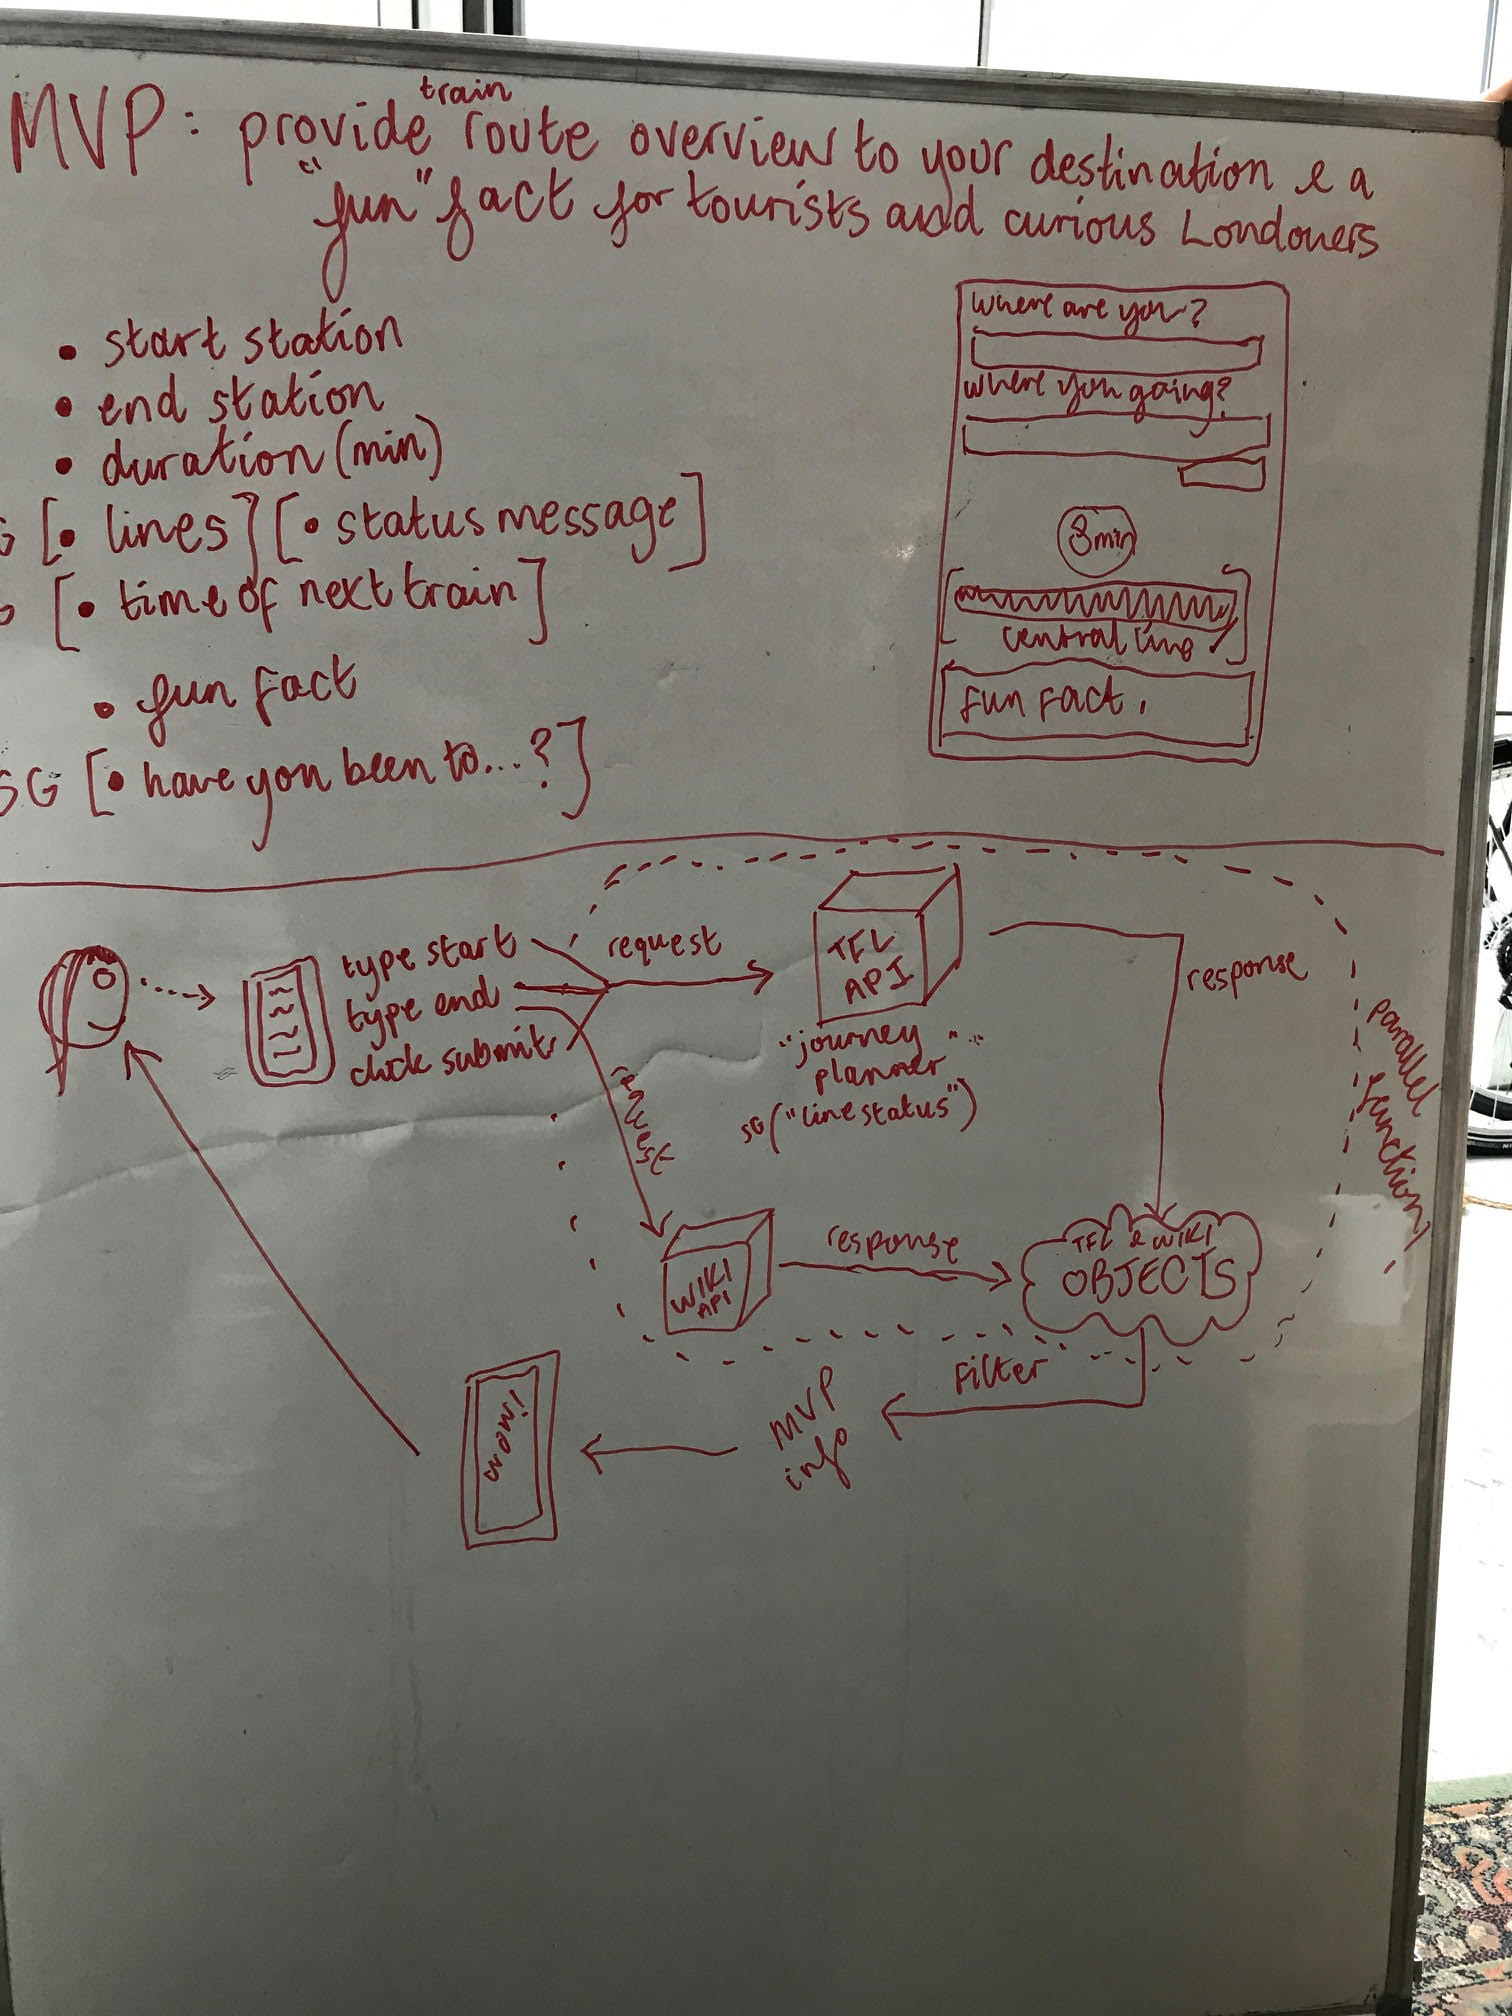 train
MVP: provide route overview to your destination & a
"fun" fact for tourists and curious Londoners
• start station
• end station
• duration (min)
G [• lines] [• status message]
G [• time of next train]
• fun fact
SG [• have you been to...?]
where are you?
where you going?
8min
central line
fun fact.
type start
type end
click submit
request
TFL
API
"journey
planner"
SG ("line status")
response
parallel
function
request
WIKI
API
response
TFL & WIKI
OBJECTS
Filter
MVP
info